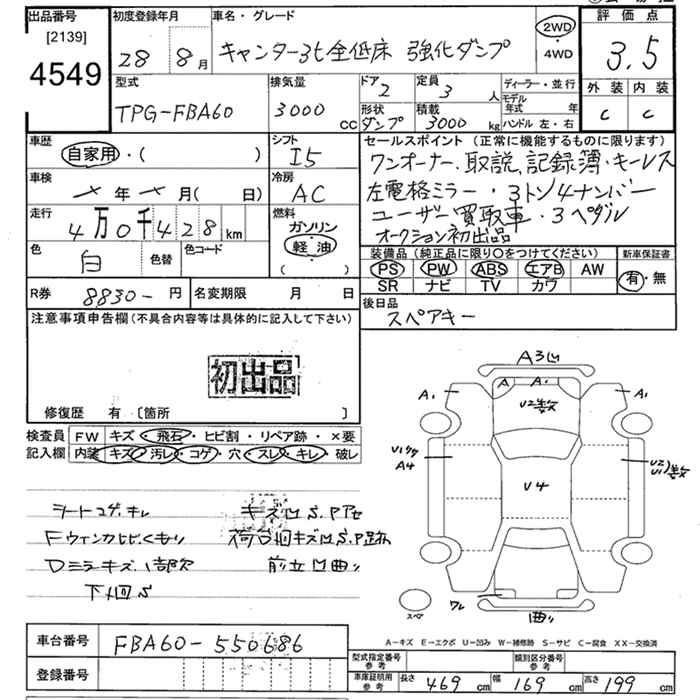 出品番号
[2139]
4549
初度登録年月
28 8月
車名・グレード
キャンター3t全低床 強化ダンプ
2WD
・
4WD
評価点
3.5
外装 内装
C C
型式
TPG-FBA60
排気量
3000 CC
ドア
2
定員
3 人
ディーラー・並行
モデル年式 年
形状
ダンプ
積載
3000 kg
ハンドル 左・右
車歴
自家用・( )
シフト
I5
車検
年 月( 日)
冷房
AC
走行
4万0千428km
燃料
ガソリン
軽油
( )
色
白
色替
色コード
R券
8830-円
名変期限 月 日
セールスポイント(正常に機能するものに限ります)
ワンオーナー.取説.記録簿・キーレス
左電格ミラー・3トン4ナンバー
ユーザー買取車・3ペダル
オークション初出品
装備品(純正品に限り○をつけてください)
PS PW ABS エアB AW
SR ナビ TV カワ
新車保証書
有・無
後日品
スペアキー
注意事項申告欄(不具合内容等は具体的に記入して下さい)
初出品
修復歴 有 〔箇所 〕
検査員記入欄
FW キズ・飛石・ヒビ割・リペア跡・×要
内装 キズ・汚レ・コゲ・穴・スレ・キレ・破レ
シートコゲ.キレ
Fウィンカヒビくもり
Dミラキズ.1部欠
下廻S
キズ凹S.P.アセ
荷台廻キズ凹S.P跡
前立凹曲り
A3凹
A A1
A1 A1
U2数
U4
A4
U2
U1数
ワレ
曲り
スペア
A-キズ E-エクボ U-凹み W-補修跡 S-サビ C-腐食 XX-交換済
車台番号
FBA60-550686
登録番号
型式指定番号
参考
類別区分番号
参考
車庫証明用
参考
長さ 469 cm 幅 169 cm 高さ 199 cm